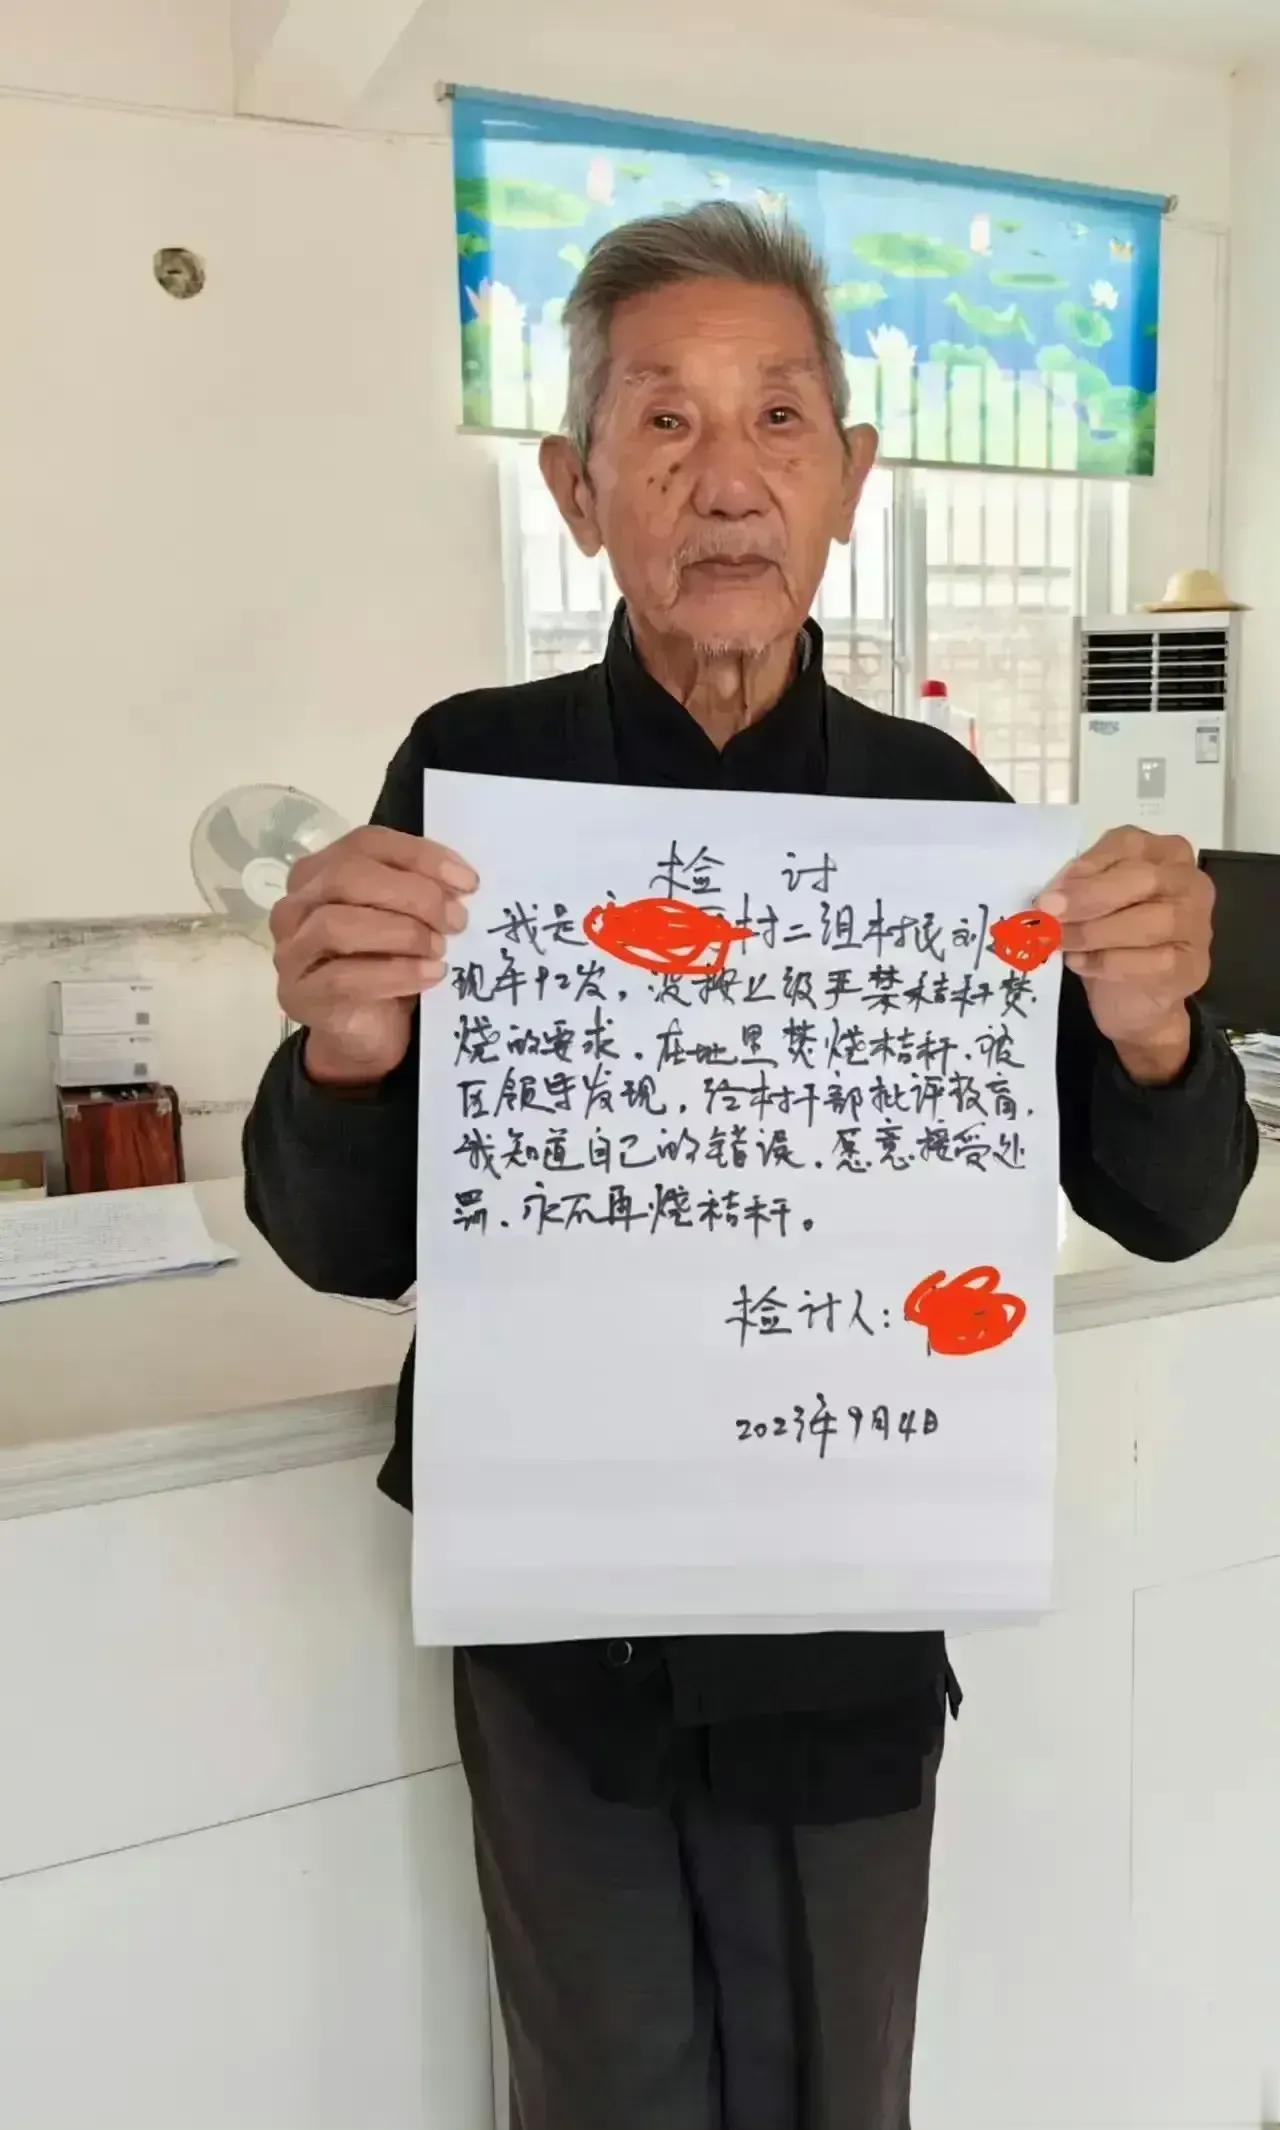 检 讨
我是 村二组村民刘
现年92岁，没按上级严禁秸秆焚
烧的要求，在地里焚烧秸秆，被
区领导发现，给村干部批评教育，
我知道自己的错误，愿意接受处
罚，永不再烧秸秆。
检讨人：
2023年9月4日